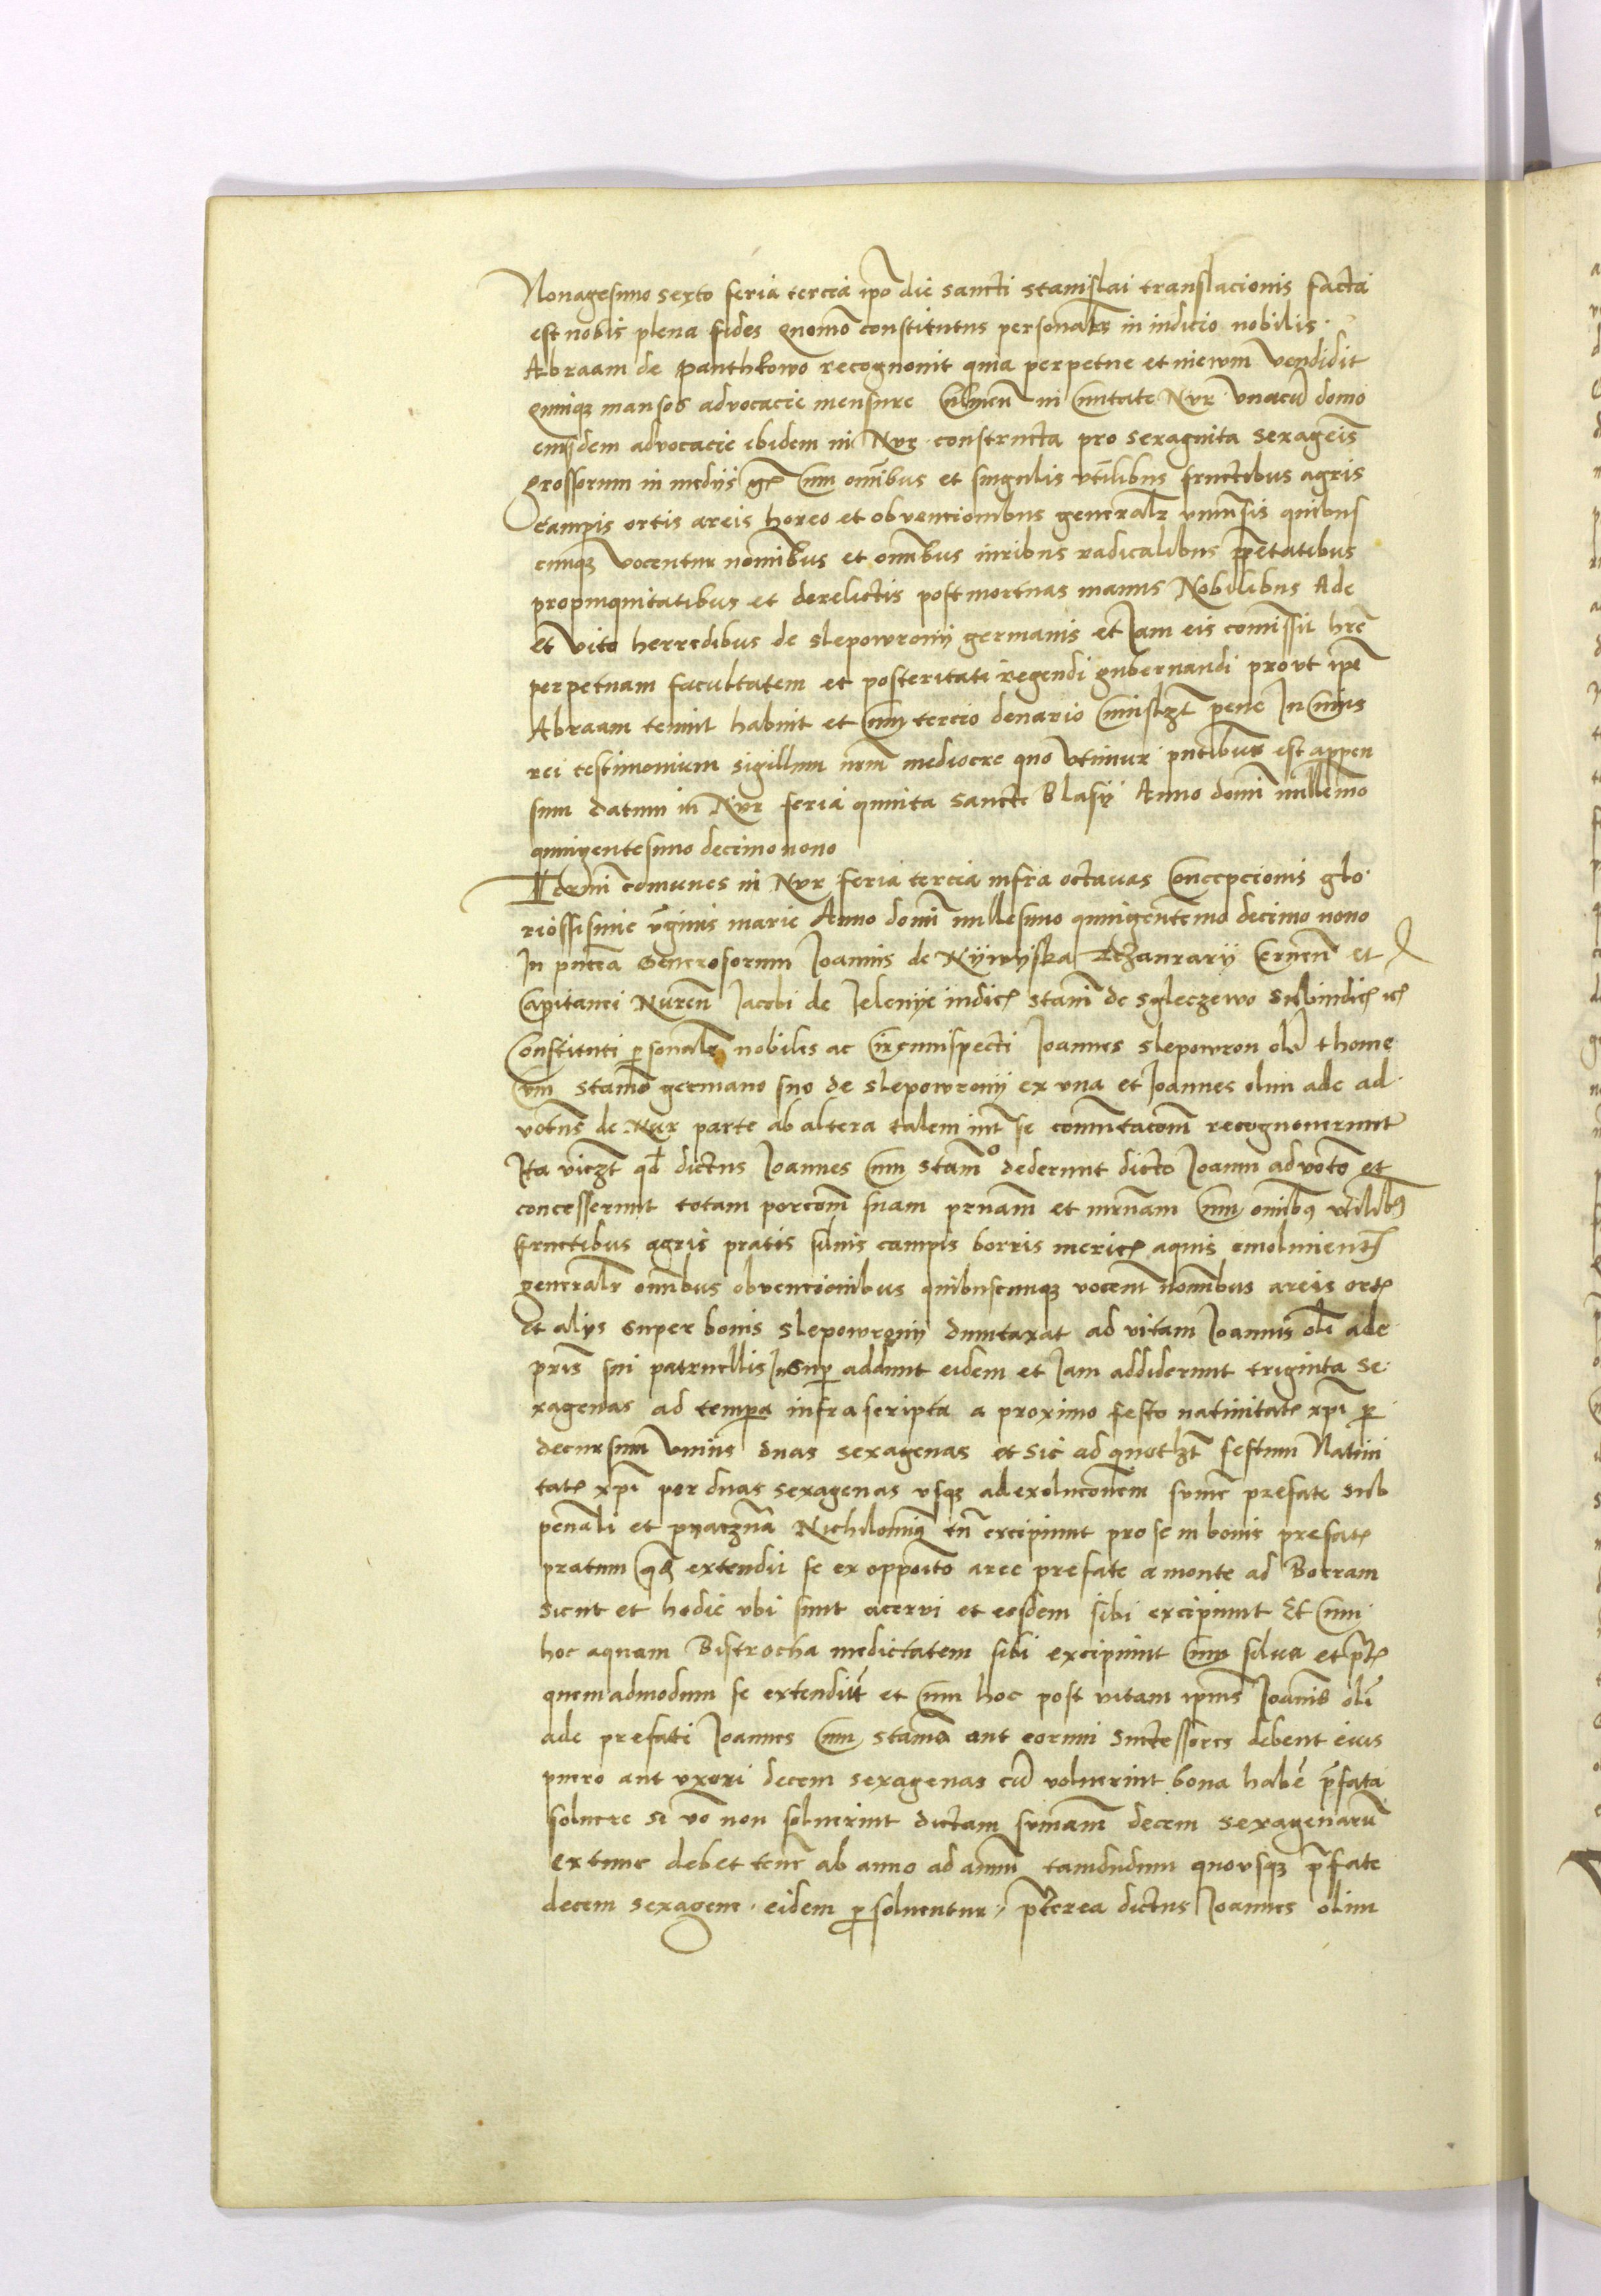 Nonagesimo sexto feria tercia ipo die sancti stanislai translacionis facta
est nobis plena fides quomo constitutus personalr in iudicio nobilis
Abraam de Panthlowo recognouit quia perpetue et in ewm vendidit
quinqz mansos advocacie mensure Culmen in Ciuitate Nvr vnacu domo
eiusdem advocacie ibidem in Nvr constructa pro sexaginta sexageis
grossorum in mediis gr Cum omibus et singulis vtilibus fructibus agris
campis ortis areis horeo et obvencionibus generalr vniuersis quibus
cunqz vocentur nomibus et omibus iuribus radicalibus ppetatibus
propinquitatibus et derelictis post mortuas manus Nobilibus Ade
et Vito herredibus de slepowrony germanis et Iam eis comissit hre
perpetuam facultatem et posteritati regendi gubernandi prout ipe
Abraam tenuit habuit et Cum tercio denario pene In Cuius
rei testimonium sigillum nrm mediocre quo vtimur pntibus est appen
sum datum in Nvr feria quinta sancti Blasij Anno domi millemo
quingentesimo decimo nono
Termi comunes in Nvr feria tercia infra octauas Concepcionis glo
riosissime vginis marie Anno domi millesimo quingentemo decimo nono
In pntia Generosorum Ioannis de Nywyska Ernen et
Capitanei Nuren Iacobi de Ielenije iudic stani de sgleczewo subiudic ic
Constituti psonalr nobiles ac Circumspecti Ioannes slepowron oli thome
cum stamo germano suo de slepowrony ex vna et Ioannes olim ade ad
votus de Nur parte ab altera talem int se comutacom recognouerunt
Ita viczt qd dictus Ioannes Cum stamo dederunt dicto Ioanni advoto et
concesserunt totam porcom suam prnam et mrnam Cum omibus vtilibus
fructibus agris pratis siluis campis borris meric aquis emolument
generalr omibus obvencionibus quibuscunqz vocent nomibus areis ort
et alys super bonis slepowrony dumtaxat ad vitam Ioannis oli ade
pris sui patruellis Insup addunt eidem et Iam addiderunt triginta se
xagenas ad tempa infrascripta a proximo festo natiuitat xpi p
decursum vnius duas sexagenas et sic ad quotlzt festum Natiui
tat xpi per duas sexagenas vsqz ad exolucionem sume prefate sub
penali et pyaczna Nichilominqz tn excipiunt pro se in bonis prefat
pratum qd extendit se ex oppoito aree prefate a monte ad Borram
sicut et hodie vbi sunt acervi et eosdem sibi excipiunt Et Cum
hoc aquam Bistrocha medietatem sibi excipiunt Cum silua et prt
quemadmodum se extendut et Cum hoc post vitam ipius Ioannis oli
ade prefati Ioannes Cum stamo aut eorum successores debent eius
puero aut vxori decem sexagenas cu voluerint bona habe pfata
soluere si vo non soluerint dictam sumam decem sexagenaru
extunc debet tene ab anno ad annum tamdudum quousqz pfate
decem sexagene eidem psoluentur pterea dictus Ioannes olim